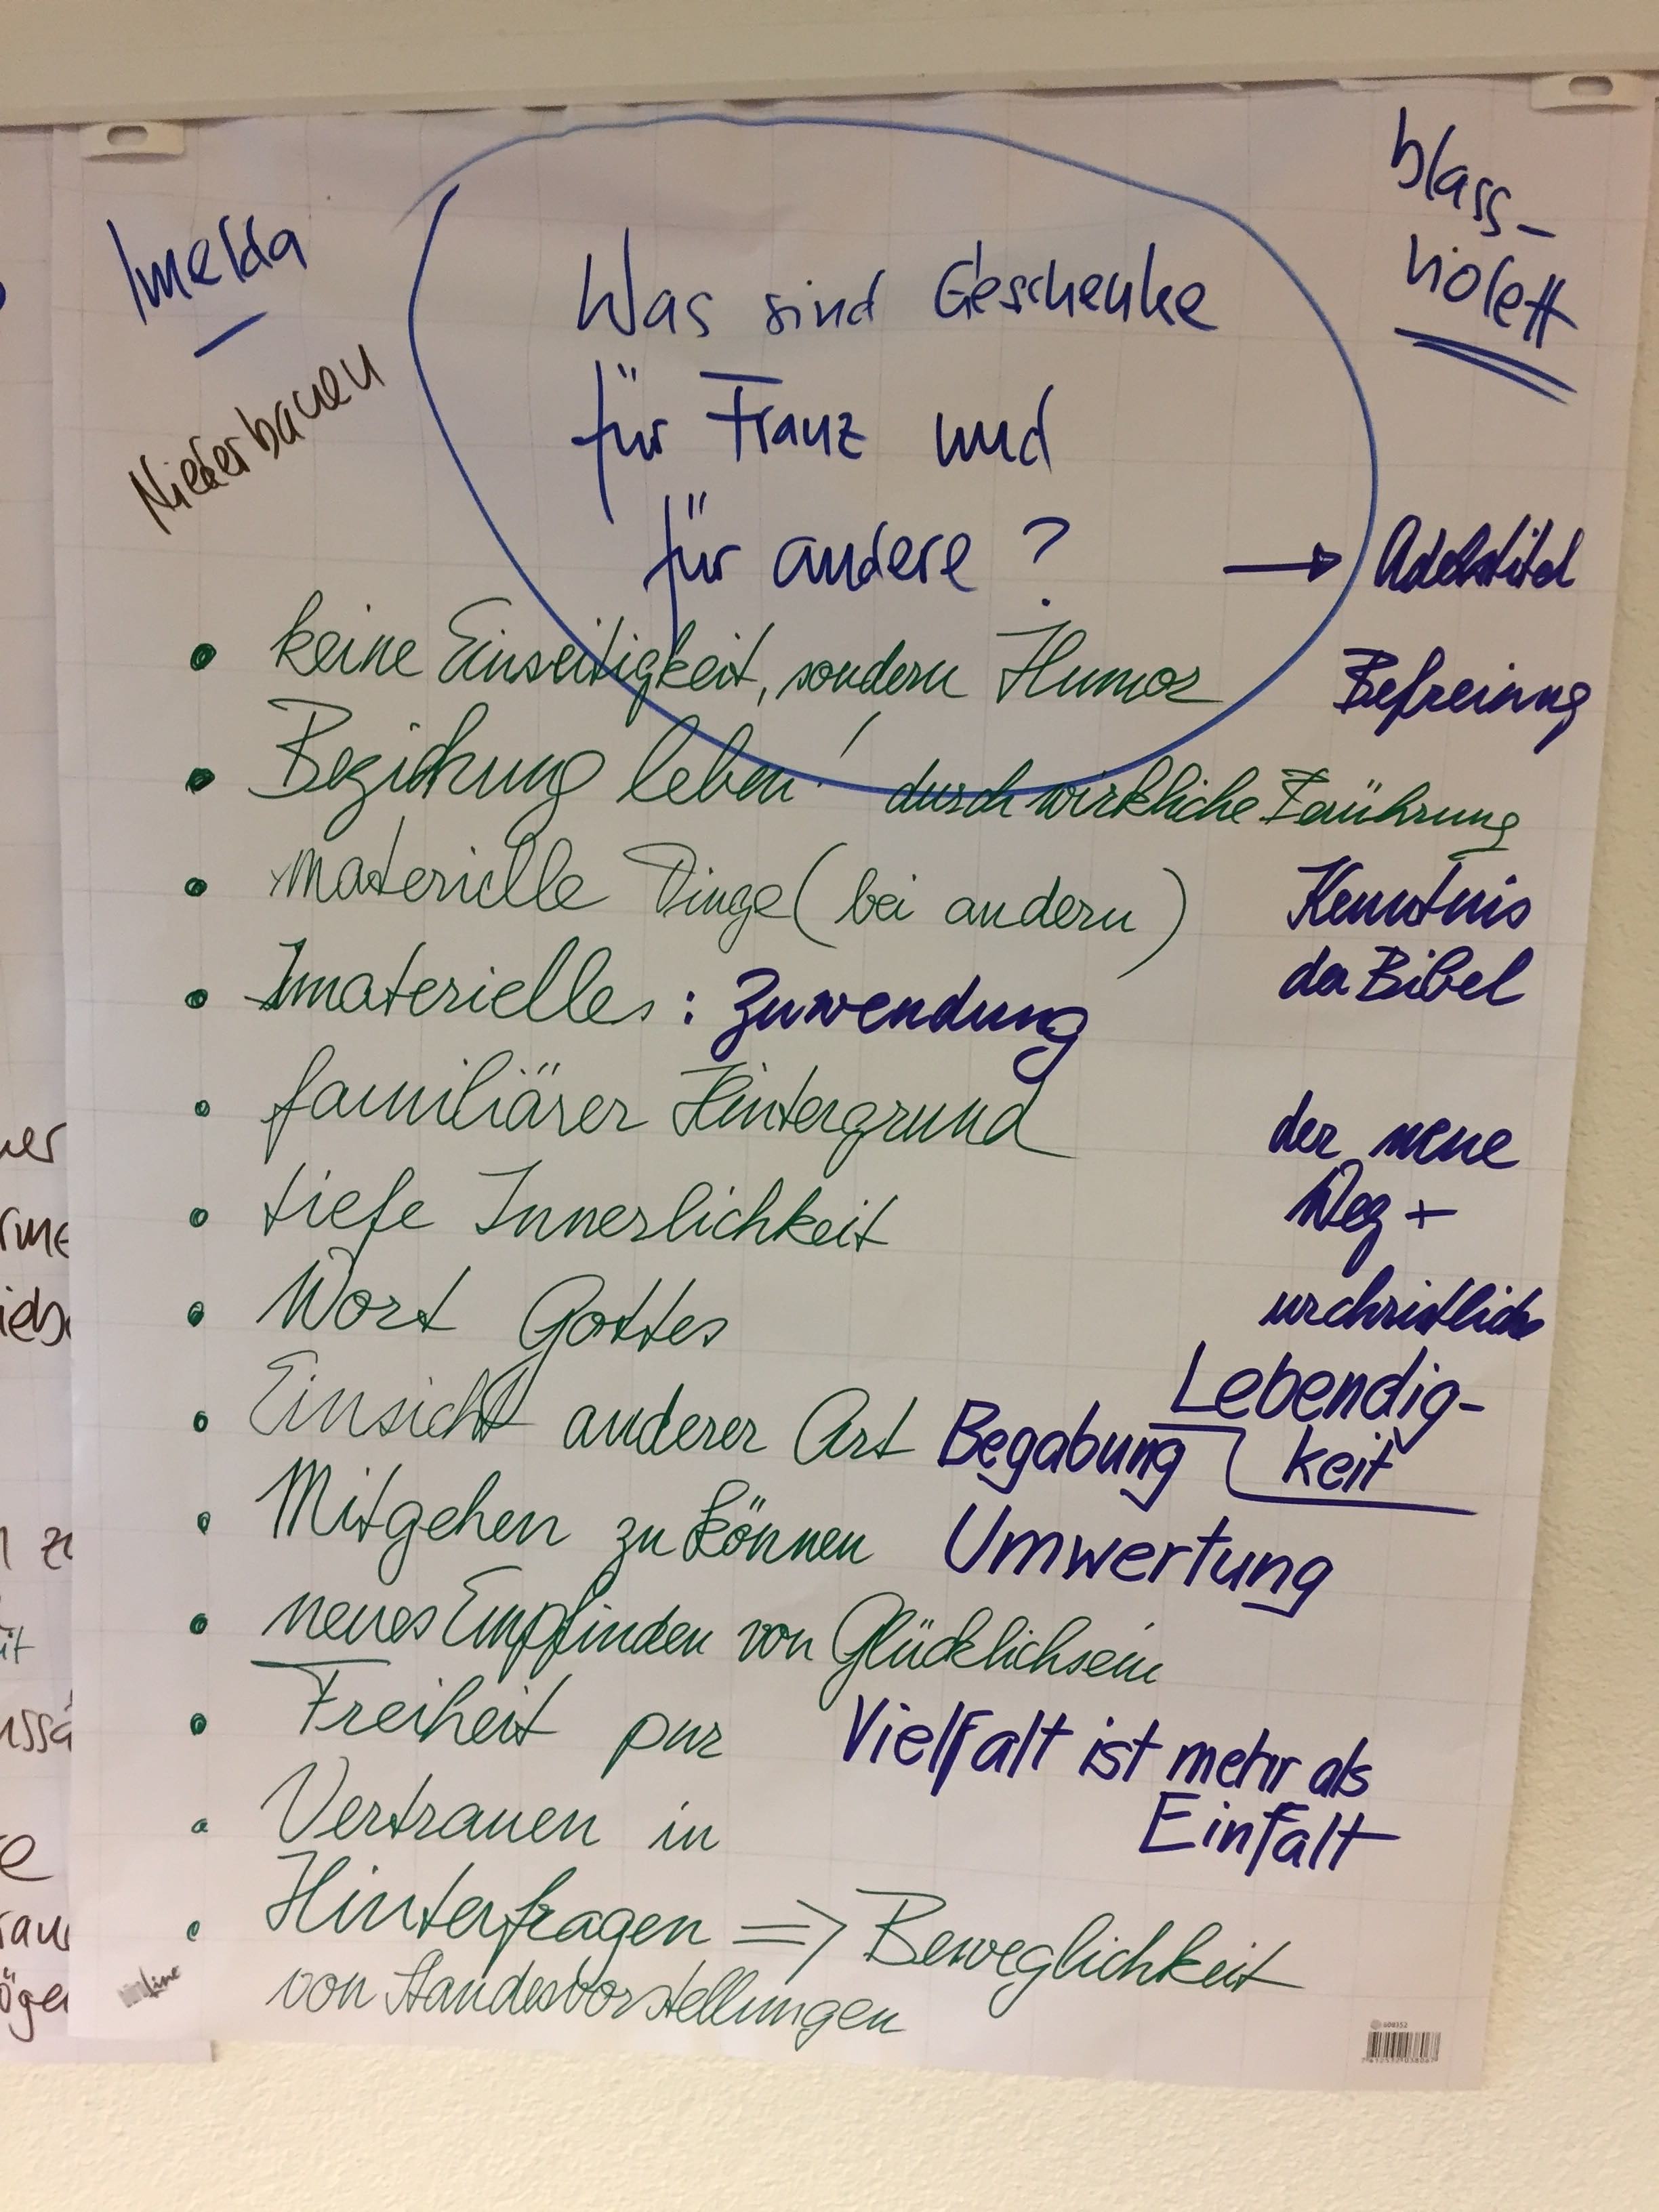 Imelda
Niederbauen
blass-
violett
Was sind Geschenke
für Franz und
für andere ?
→ Adelstitel
• keine Einseitigkeit, sondern Humor
Befreiung
• Beziehung leben! durch wirkliche Berührung
• materielle Dinge (bei andern)
Kenntnis
der Bibel
• Imaterielles : Zuwendung
• familiärer Hintergrund
der neue
Weg +
urchristlich
• tiefe Innerlichkeit
• Wort Gottes
• Einsicht anderer Art Begabung
Lebendig-
keit
• Mitgehen zu können Umwertung
• neues Empfinden von Glücklichsein
• Freiheit pur
Vielfalt ist mehr als
Einfalt
• Vertrauen in
• Hinterfragen => Beweglichkeit
von Standesvorstellungen